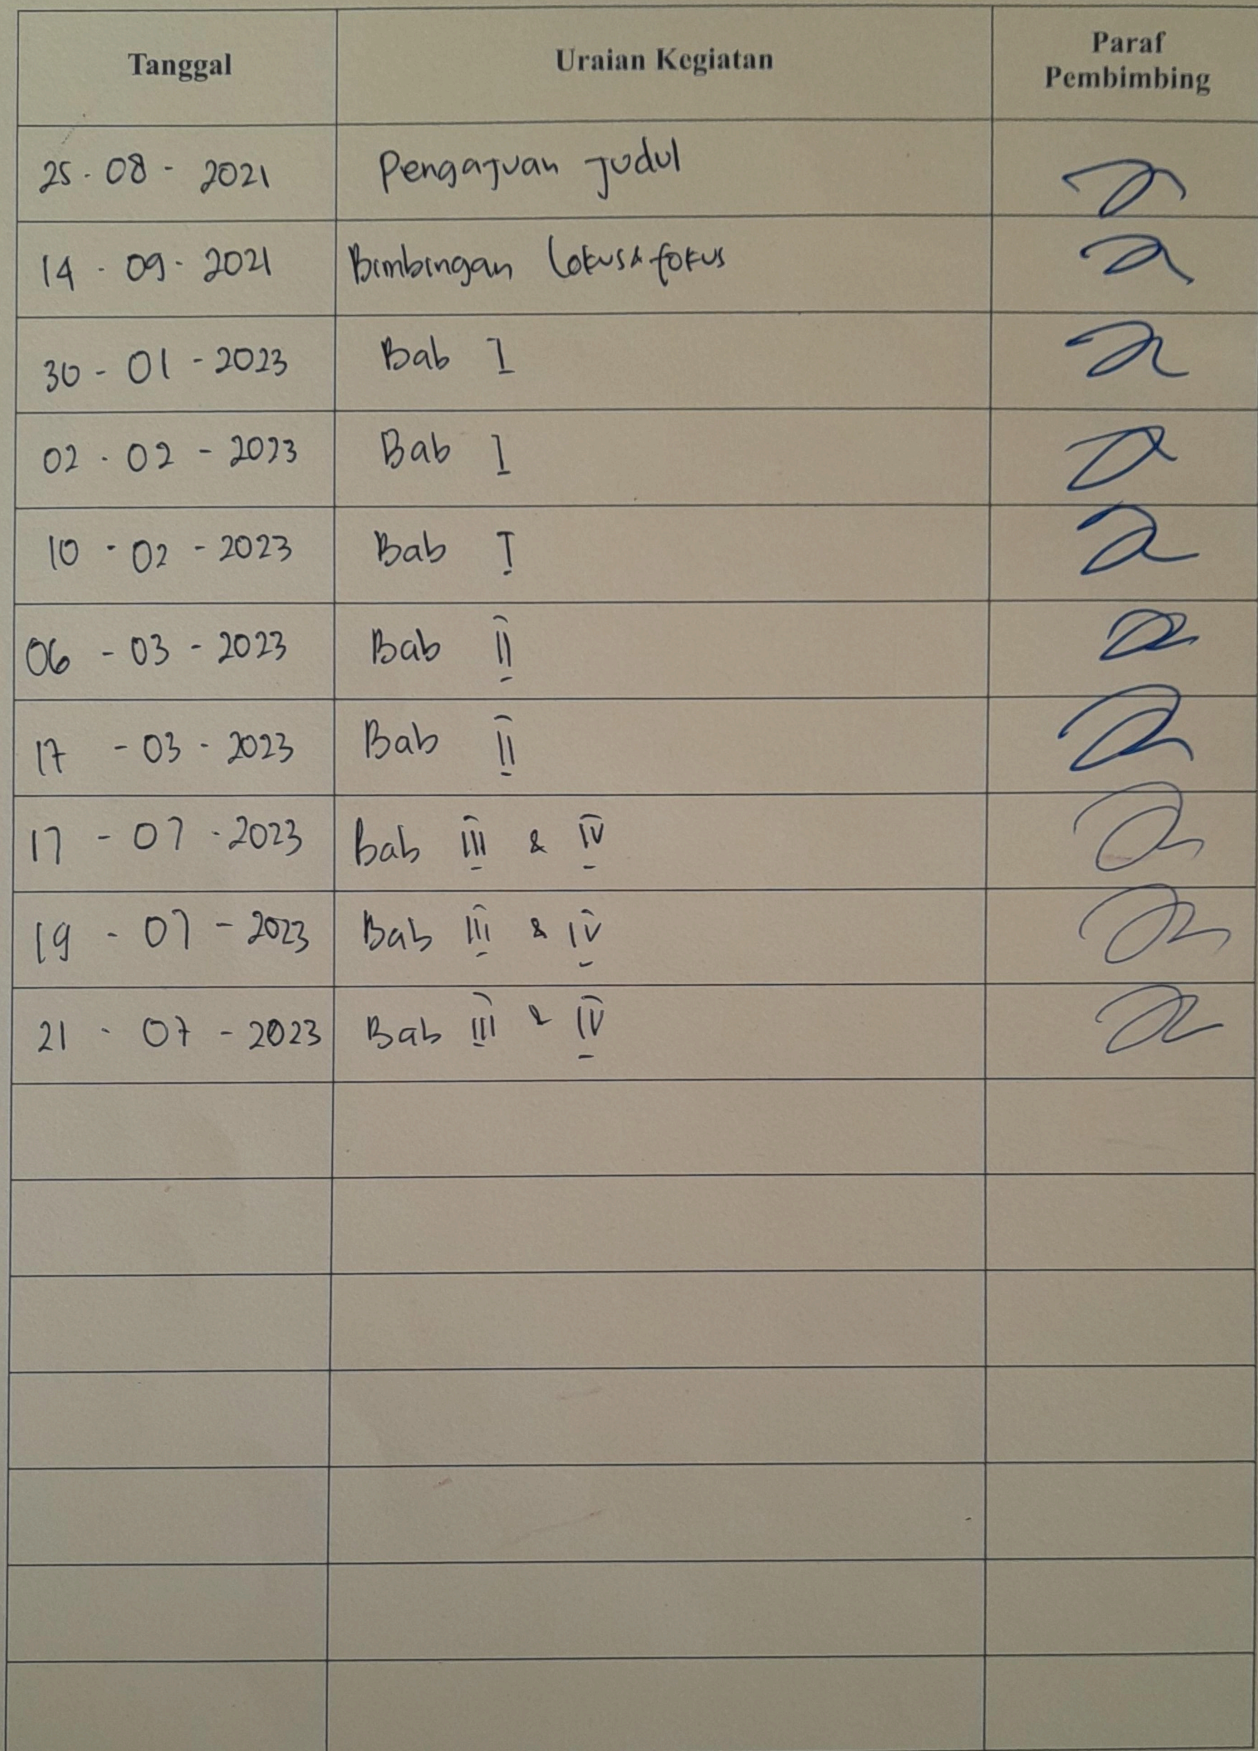 Tanggal Uraian Kegiatan Paraf Pembimbing
25-08-2021 Pengajuan Judul
14-09-2021 Bimbingan Lokus & fokus
30-01-2023 Bab I
02-02-2023 Bab I
10-02-2023 Bab I
06-03-2023 Bab II
17-03-2023 Bab II
17-07-2023 Bab III & IV
19-07-2023 Bab III & IV
21-07-2023 Bab III & IV